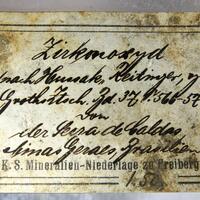 Zirkonoxyd
nach Hussak, Reitinger, 
Groth Ztsch. Bd. 37 P. 566-57
Von
der Serra de Caldas
Minas Geraes Brasilien
K. S. Mineralien-Niederlage zu Freiberg